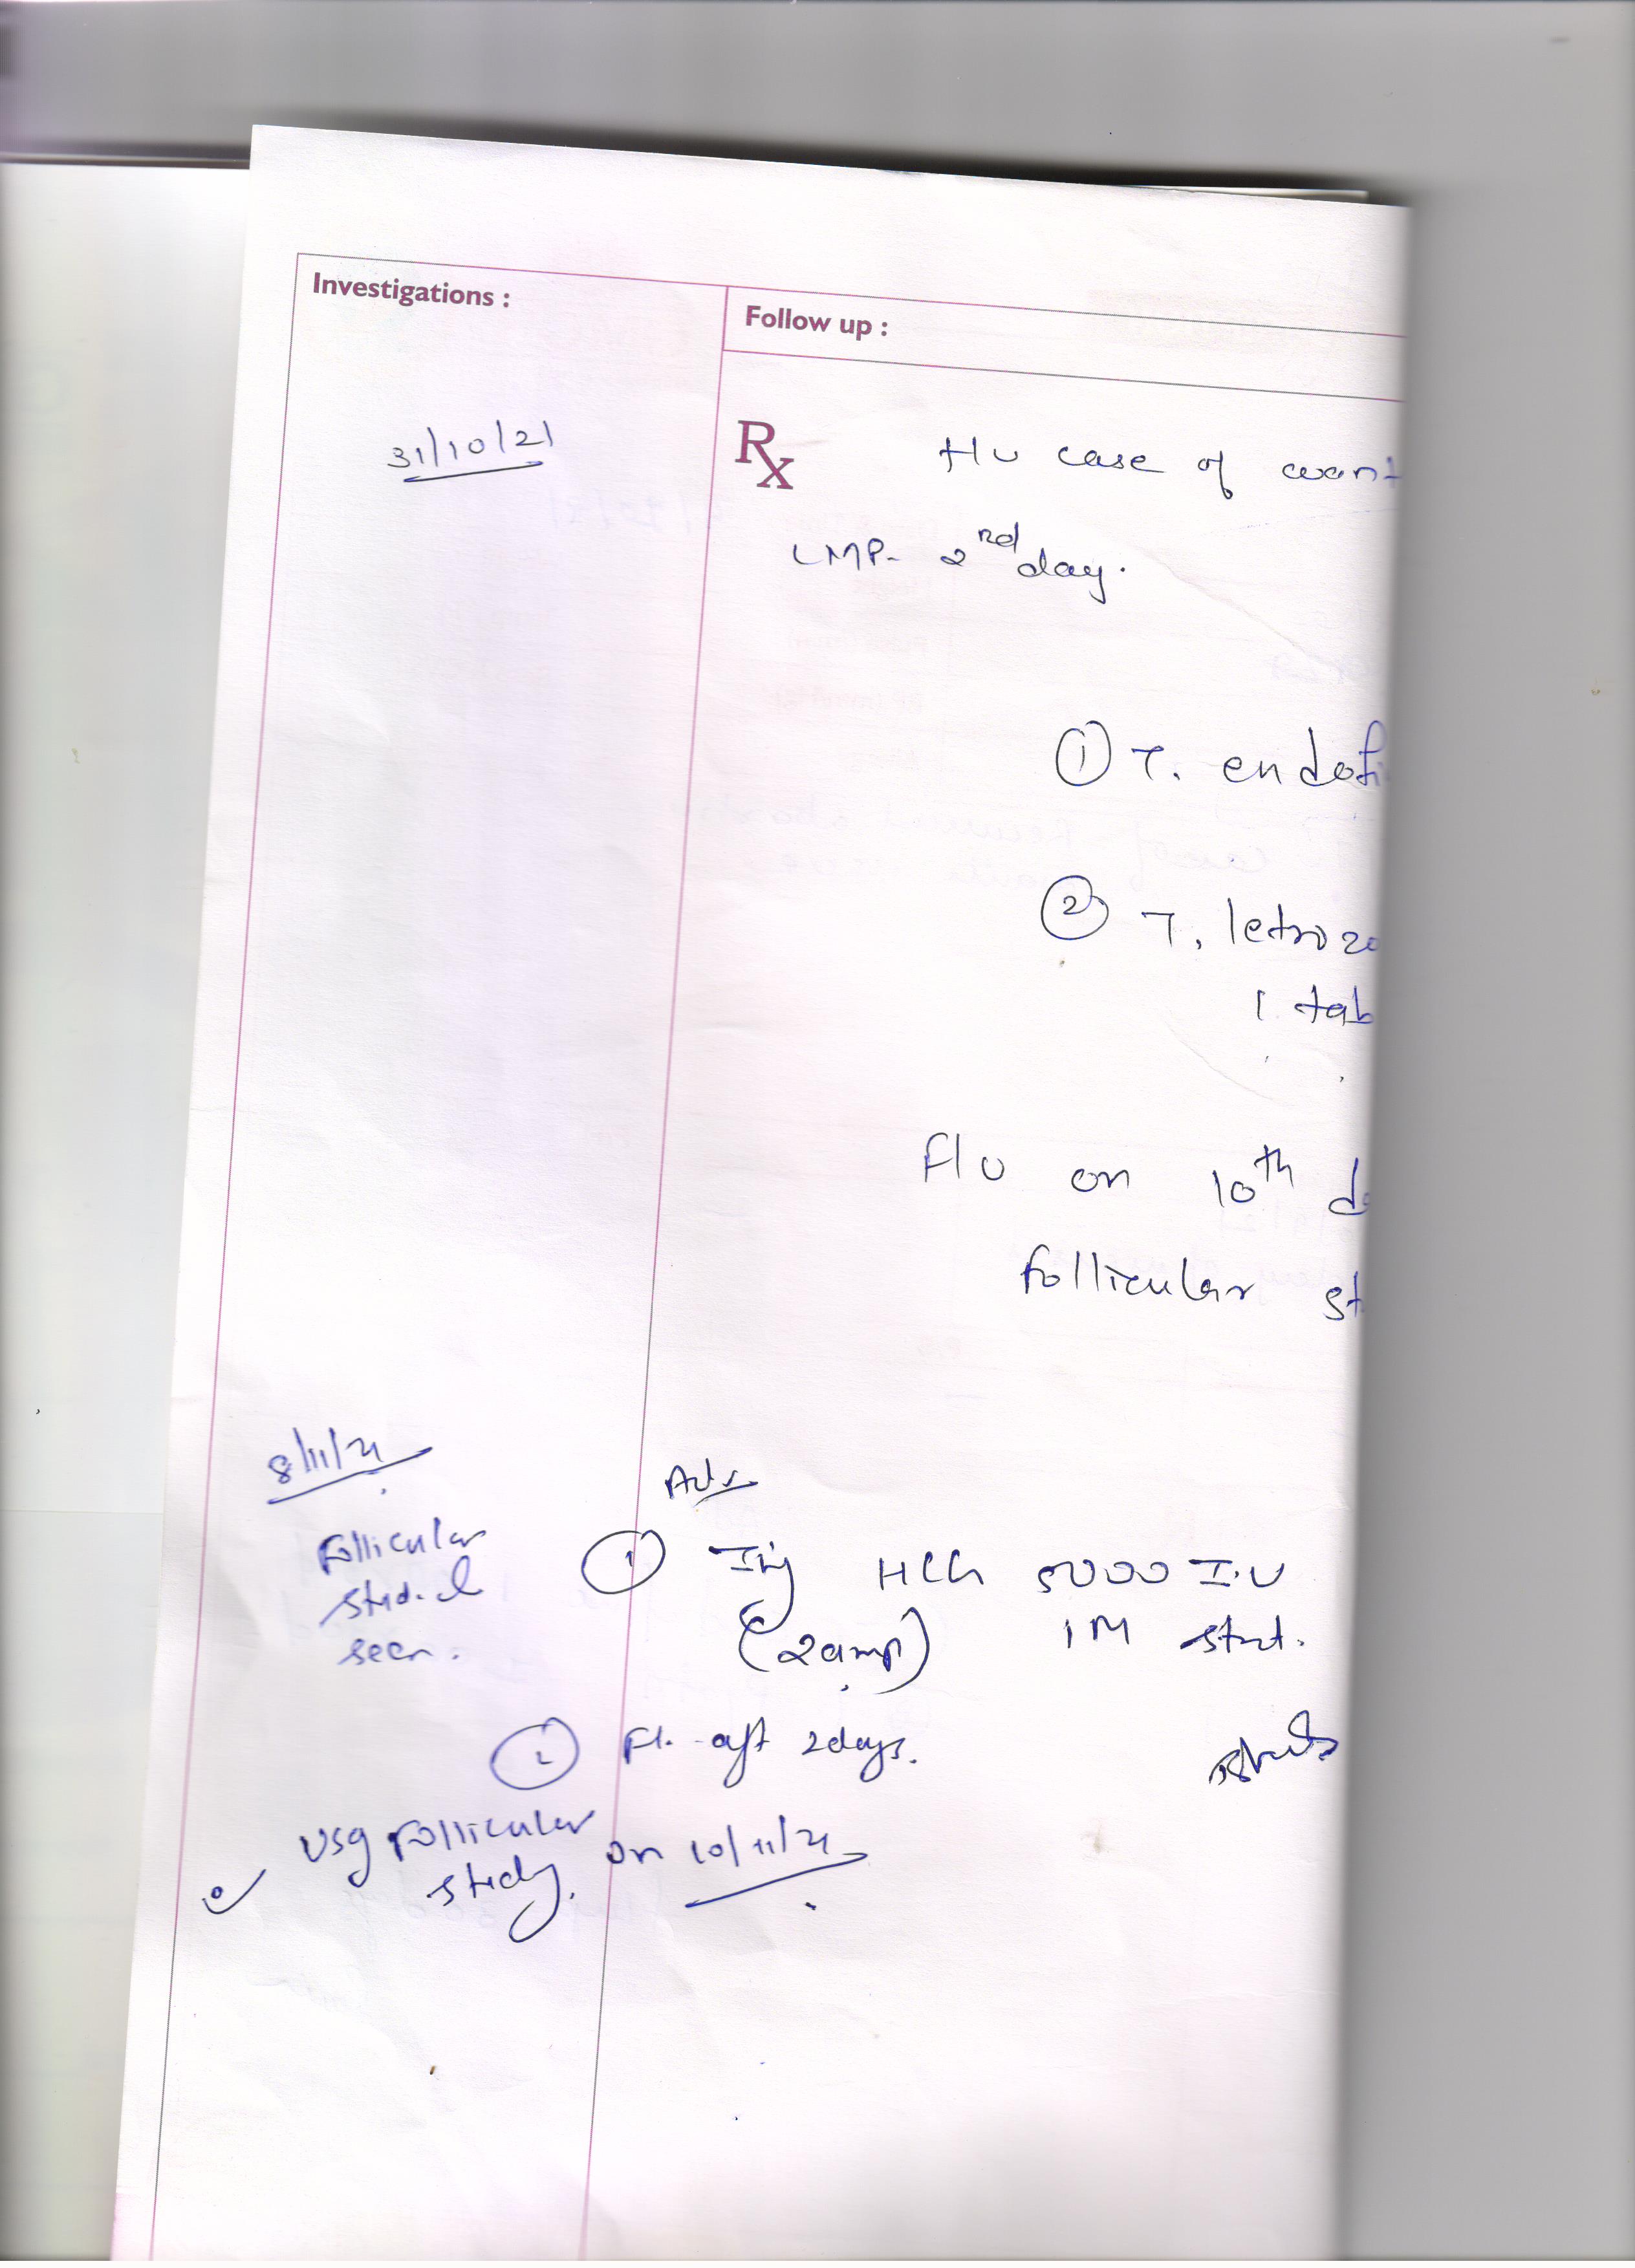 Investigations :
Follow up :
31/10/21
Rx H/o case of want
LMP- 2nd day.
① T. endof
② T. letroz
1 tab
F/u on 10th d
follicular st
8/11/21
Adv
Follicular
seen.
① Inj HCG 5000 I.U
(2amp) IM stat.
② F/. aft 2days.
USG Follicular
study. on 10/11/21